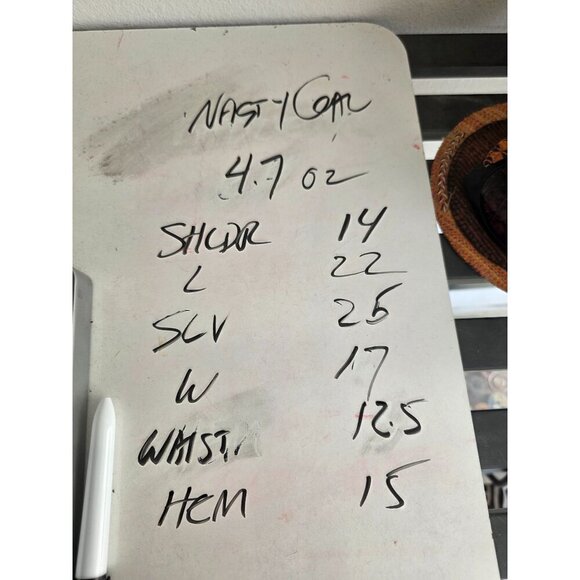 NASTY GAL
4.7 oz
SHLDR 14
L 22
SLV 25
W 17
WAIST 12.5
HEM 15